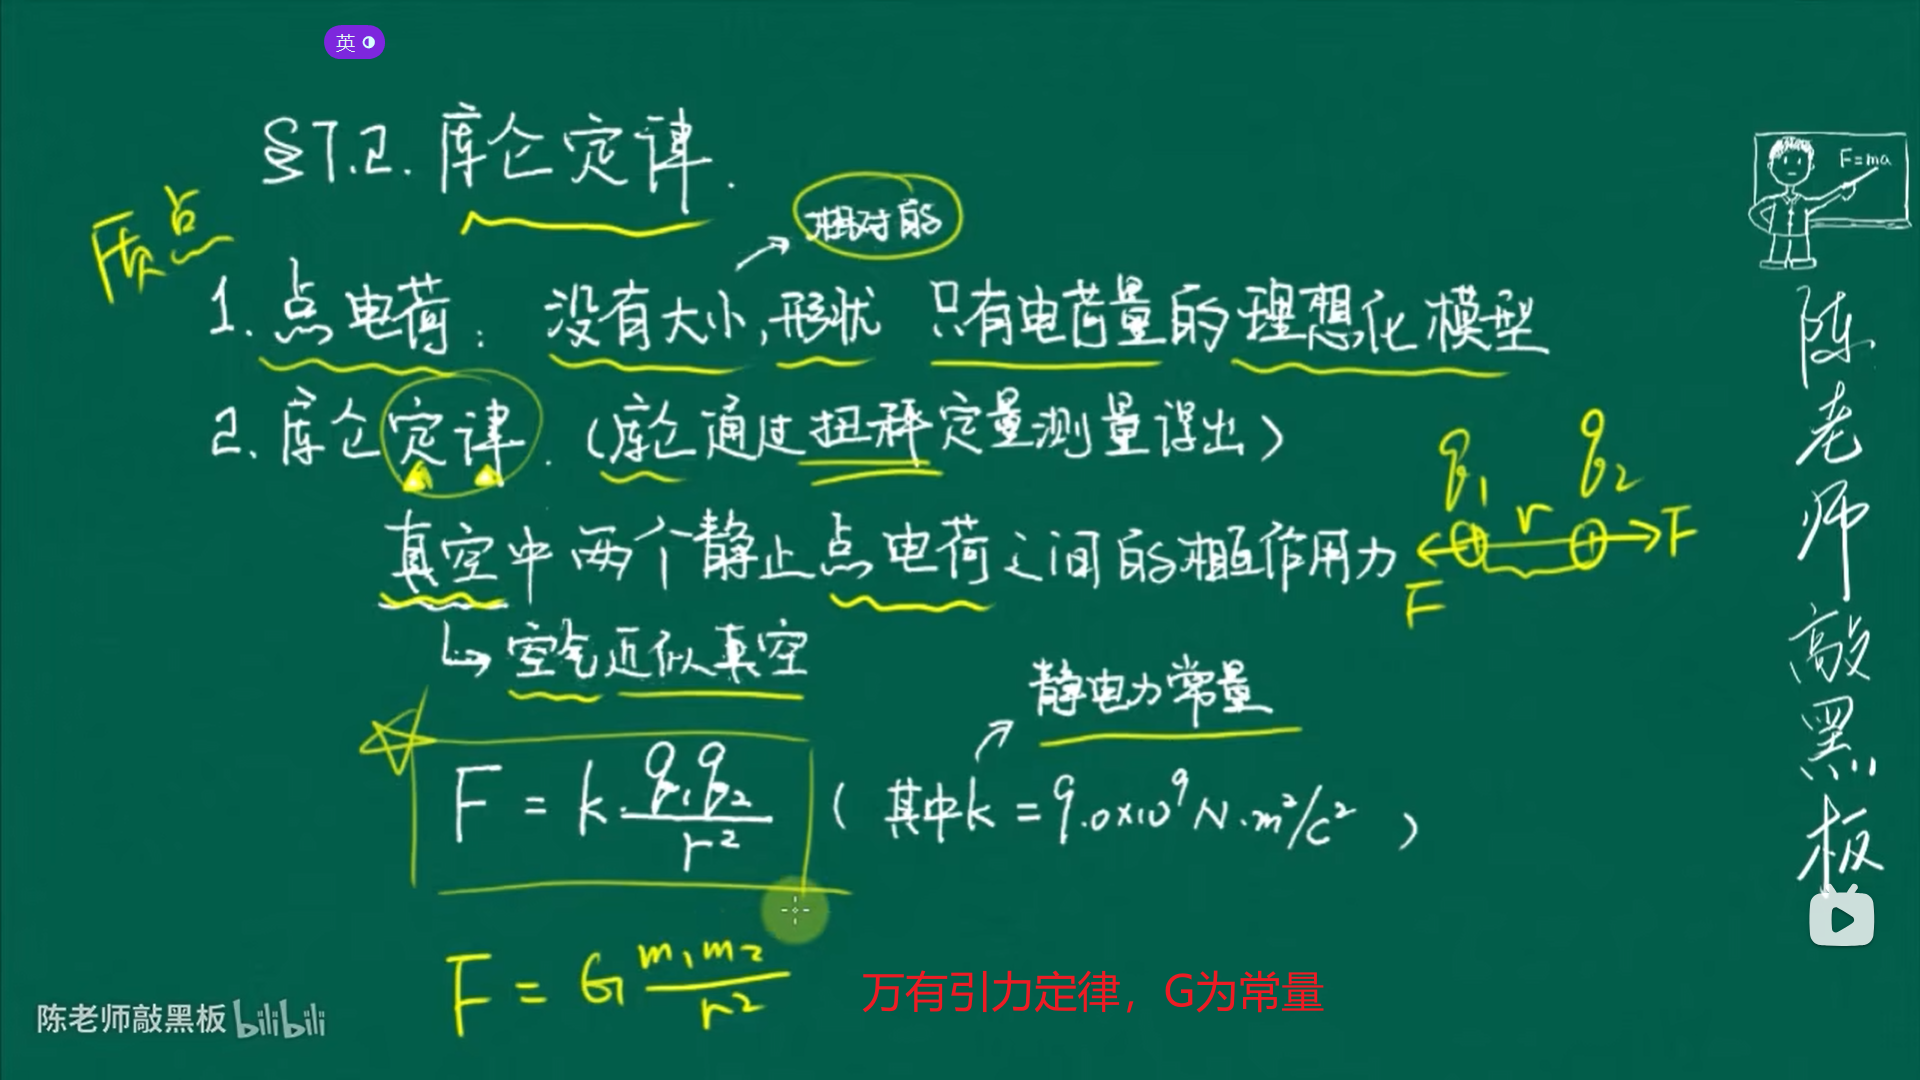 英
§1.2.库仑定律.
F=ma
质点
相对的
1. 点电荷: 没有大小,形状 只有电荷量的理想化模型
2. 库仑定律. (库仑通过扭秤定量测量得出)
q₁ q₂
r
真空中两个静止点电荷之间的相互作用力
F
F
↳ 空气近似真空
静电力常量
F = k·q₁q₂/r² ( 其中k = 9.0×10⁹ N·m²/C² )
F = G m₁m₂/r²
万有引力定律，G为常量
陈老师敲黑板 bilibili
陈老师敲黑板